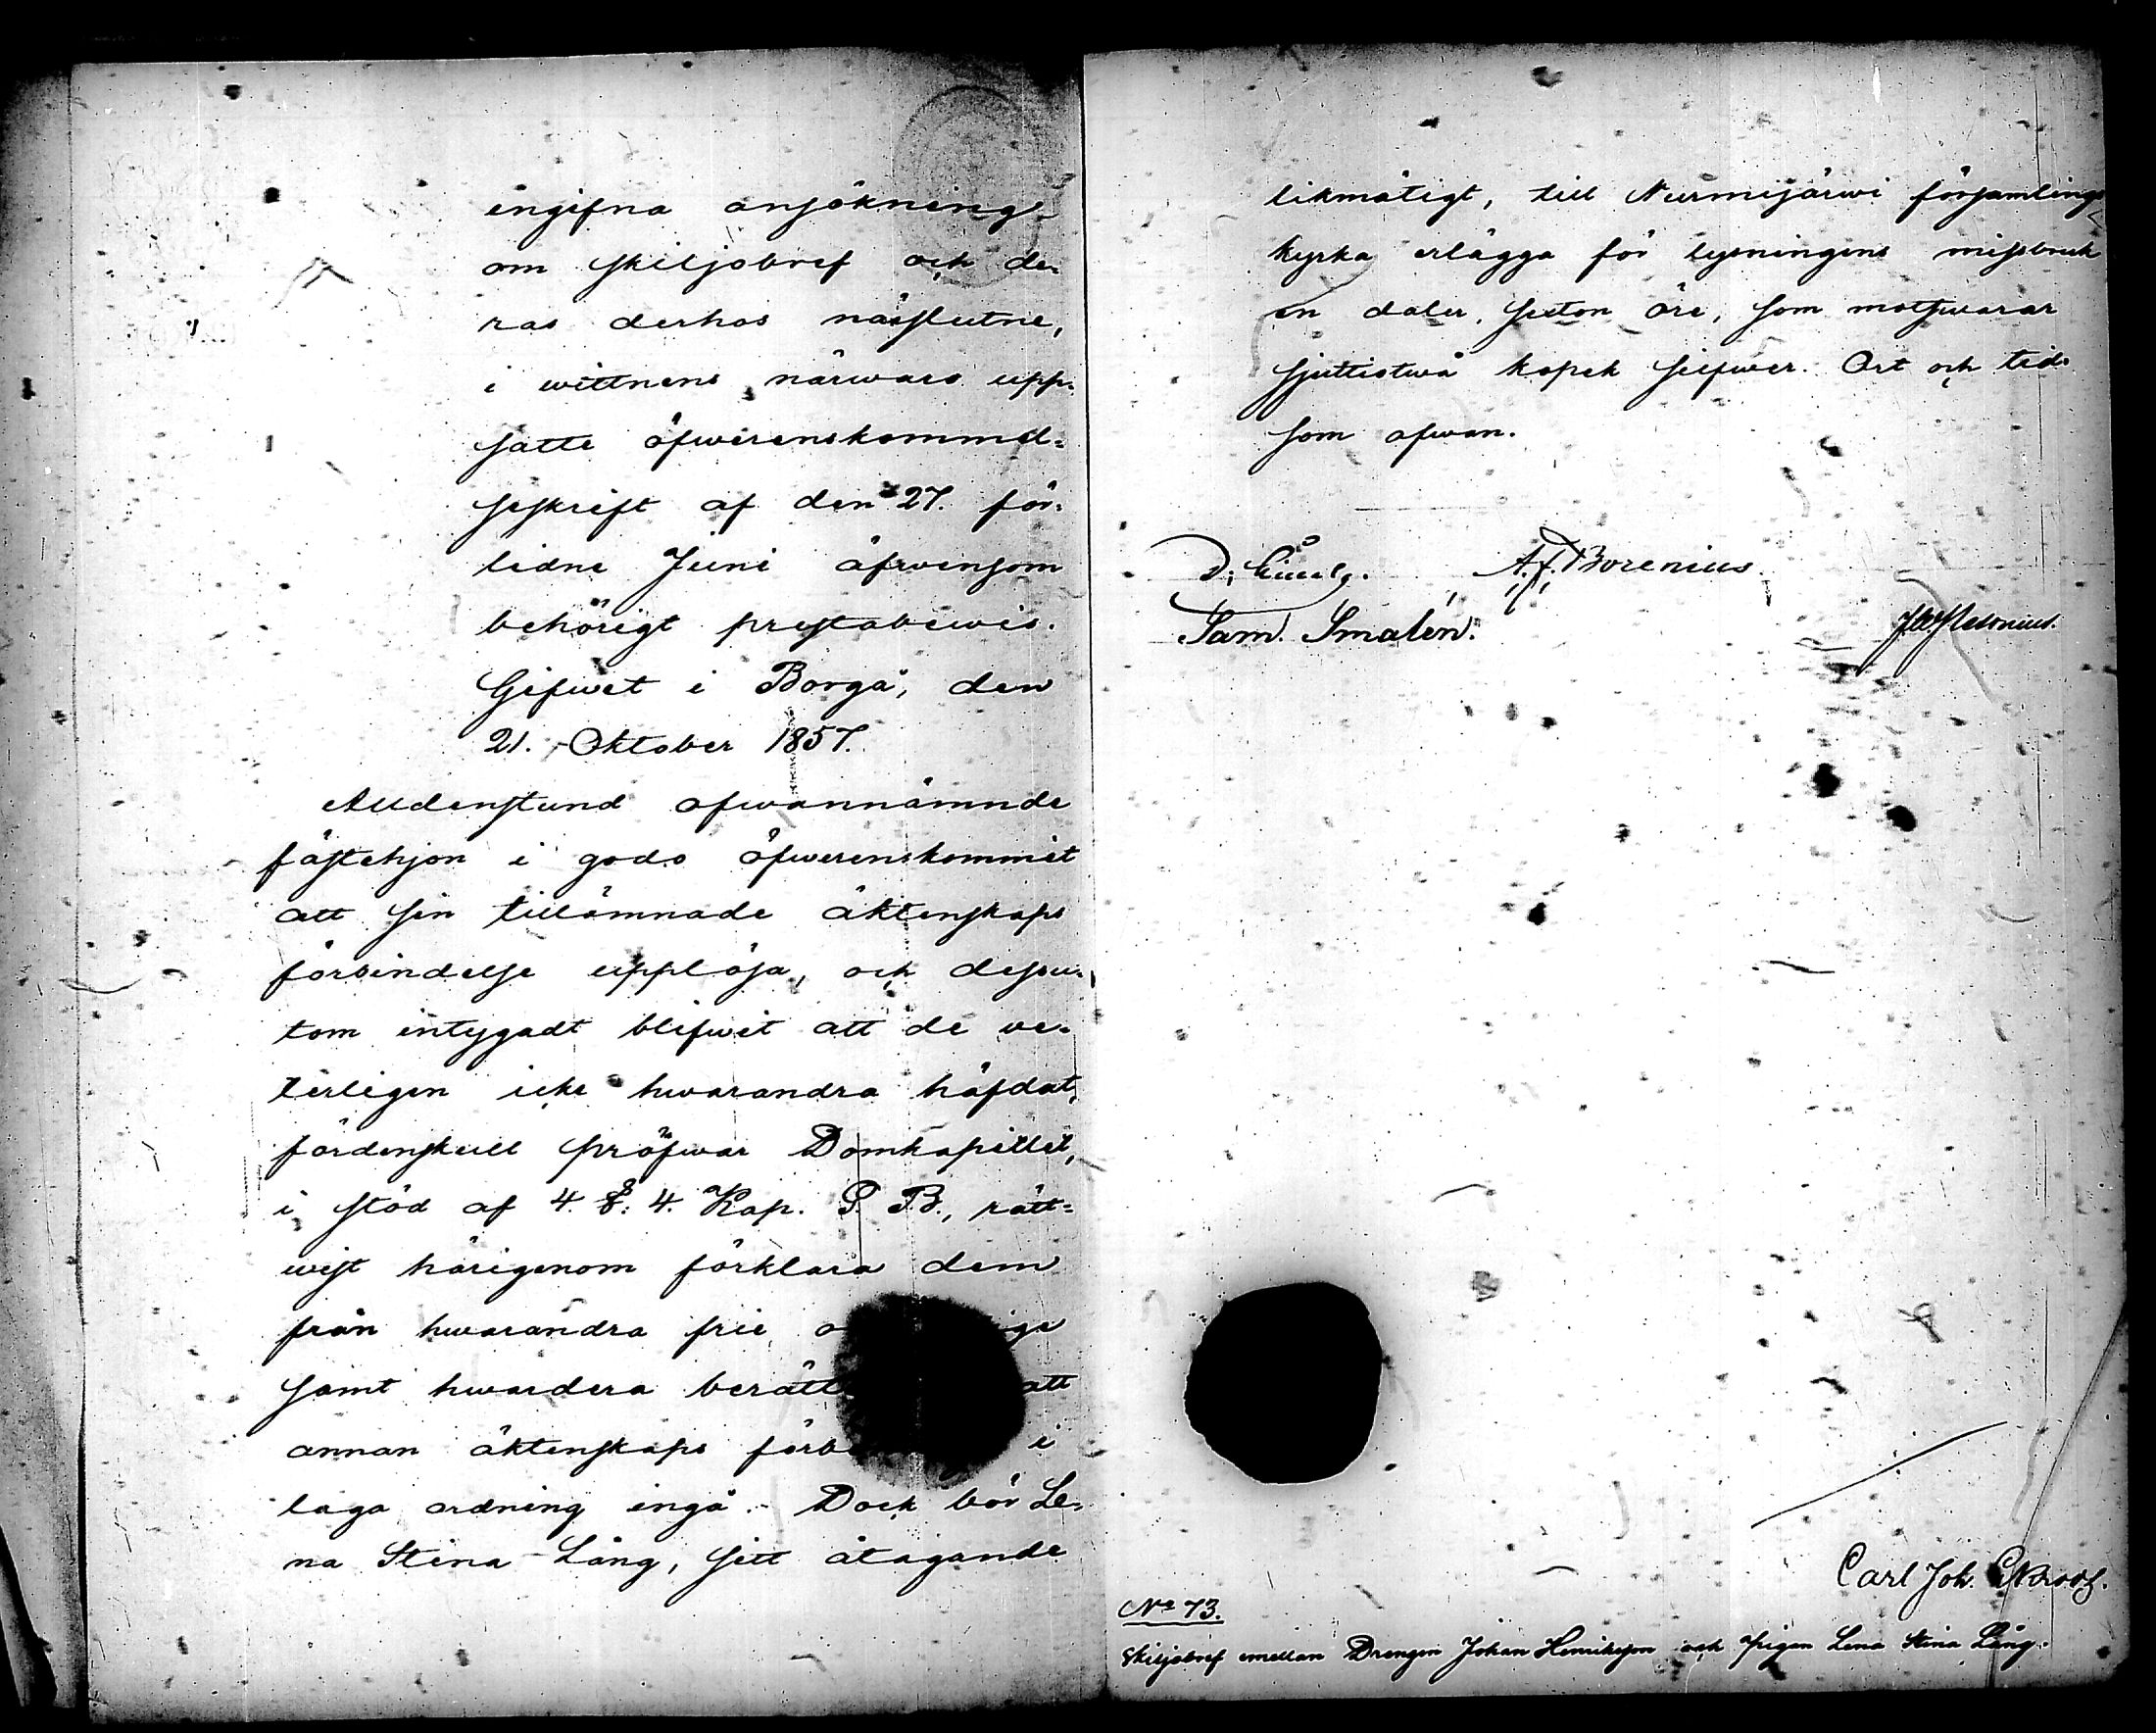 ingifna ansöknings-
om skiljobref och de-
ras derhos närslutne,
i wittnens närwaro upp-
satte öfwerenskommel-
seskrift af den 27. för-
lidne Juni äfwensom
behörigt prestabewis.
Gifwet i Borgå, den
21. Oktober 1857.
Alldenstund ofwannämnde
fästehjon i godo öfwerenskommit
att sin tillämnade äktenskaps
förbindelse upplösa, och dessu-
tom intygadt blifwit att de ve-
terligen icke hwarandra häfdat,
fördenskull pröfwar Domkapitlet,
i stöd af 4. §. 4. Kap. G. B., rätt-
wist härigenom förklara dem
från hwarandra frie
samt hwardera att
annan äktenskaps i
laga ordning ingå. Dock bör Le-
na Stina Lång, sitt åtagande
likmätigt, till Nurmijärwi församlings
kyrka erlägga för lysningens missbruk
en daler, sexton öre, som motswarar
sjuttiotwå kopek silfwer. Ort och tid
som ofwan.
A. F. Borenius.
Sam. Smalén.
Carl Joh.
No 73.
Skiljobref emellan Drengen Johan Henriksson och Pigan Lena Stina Lång.